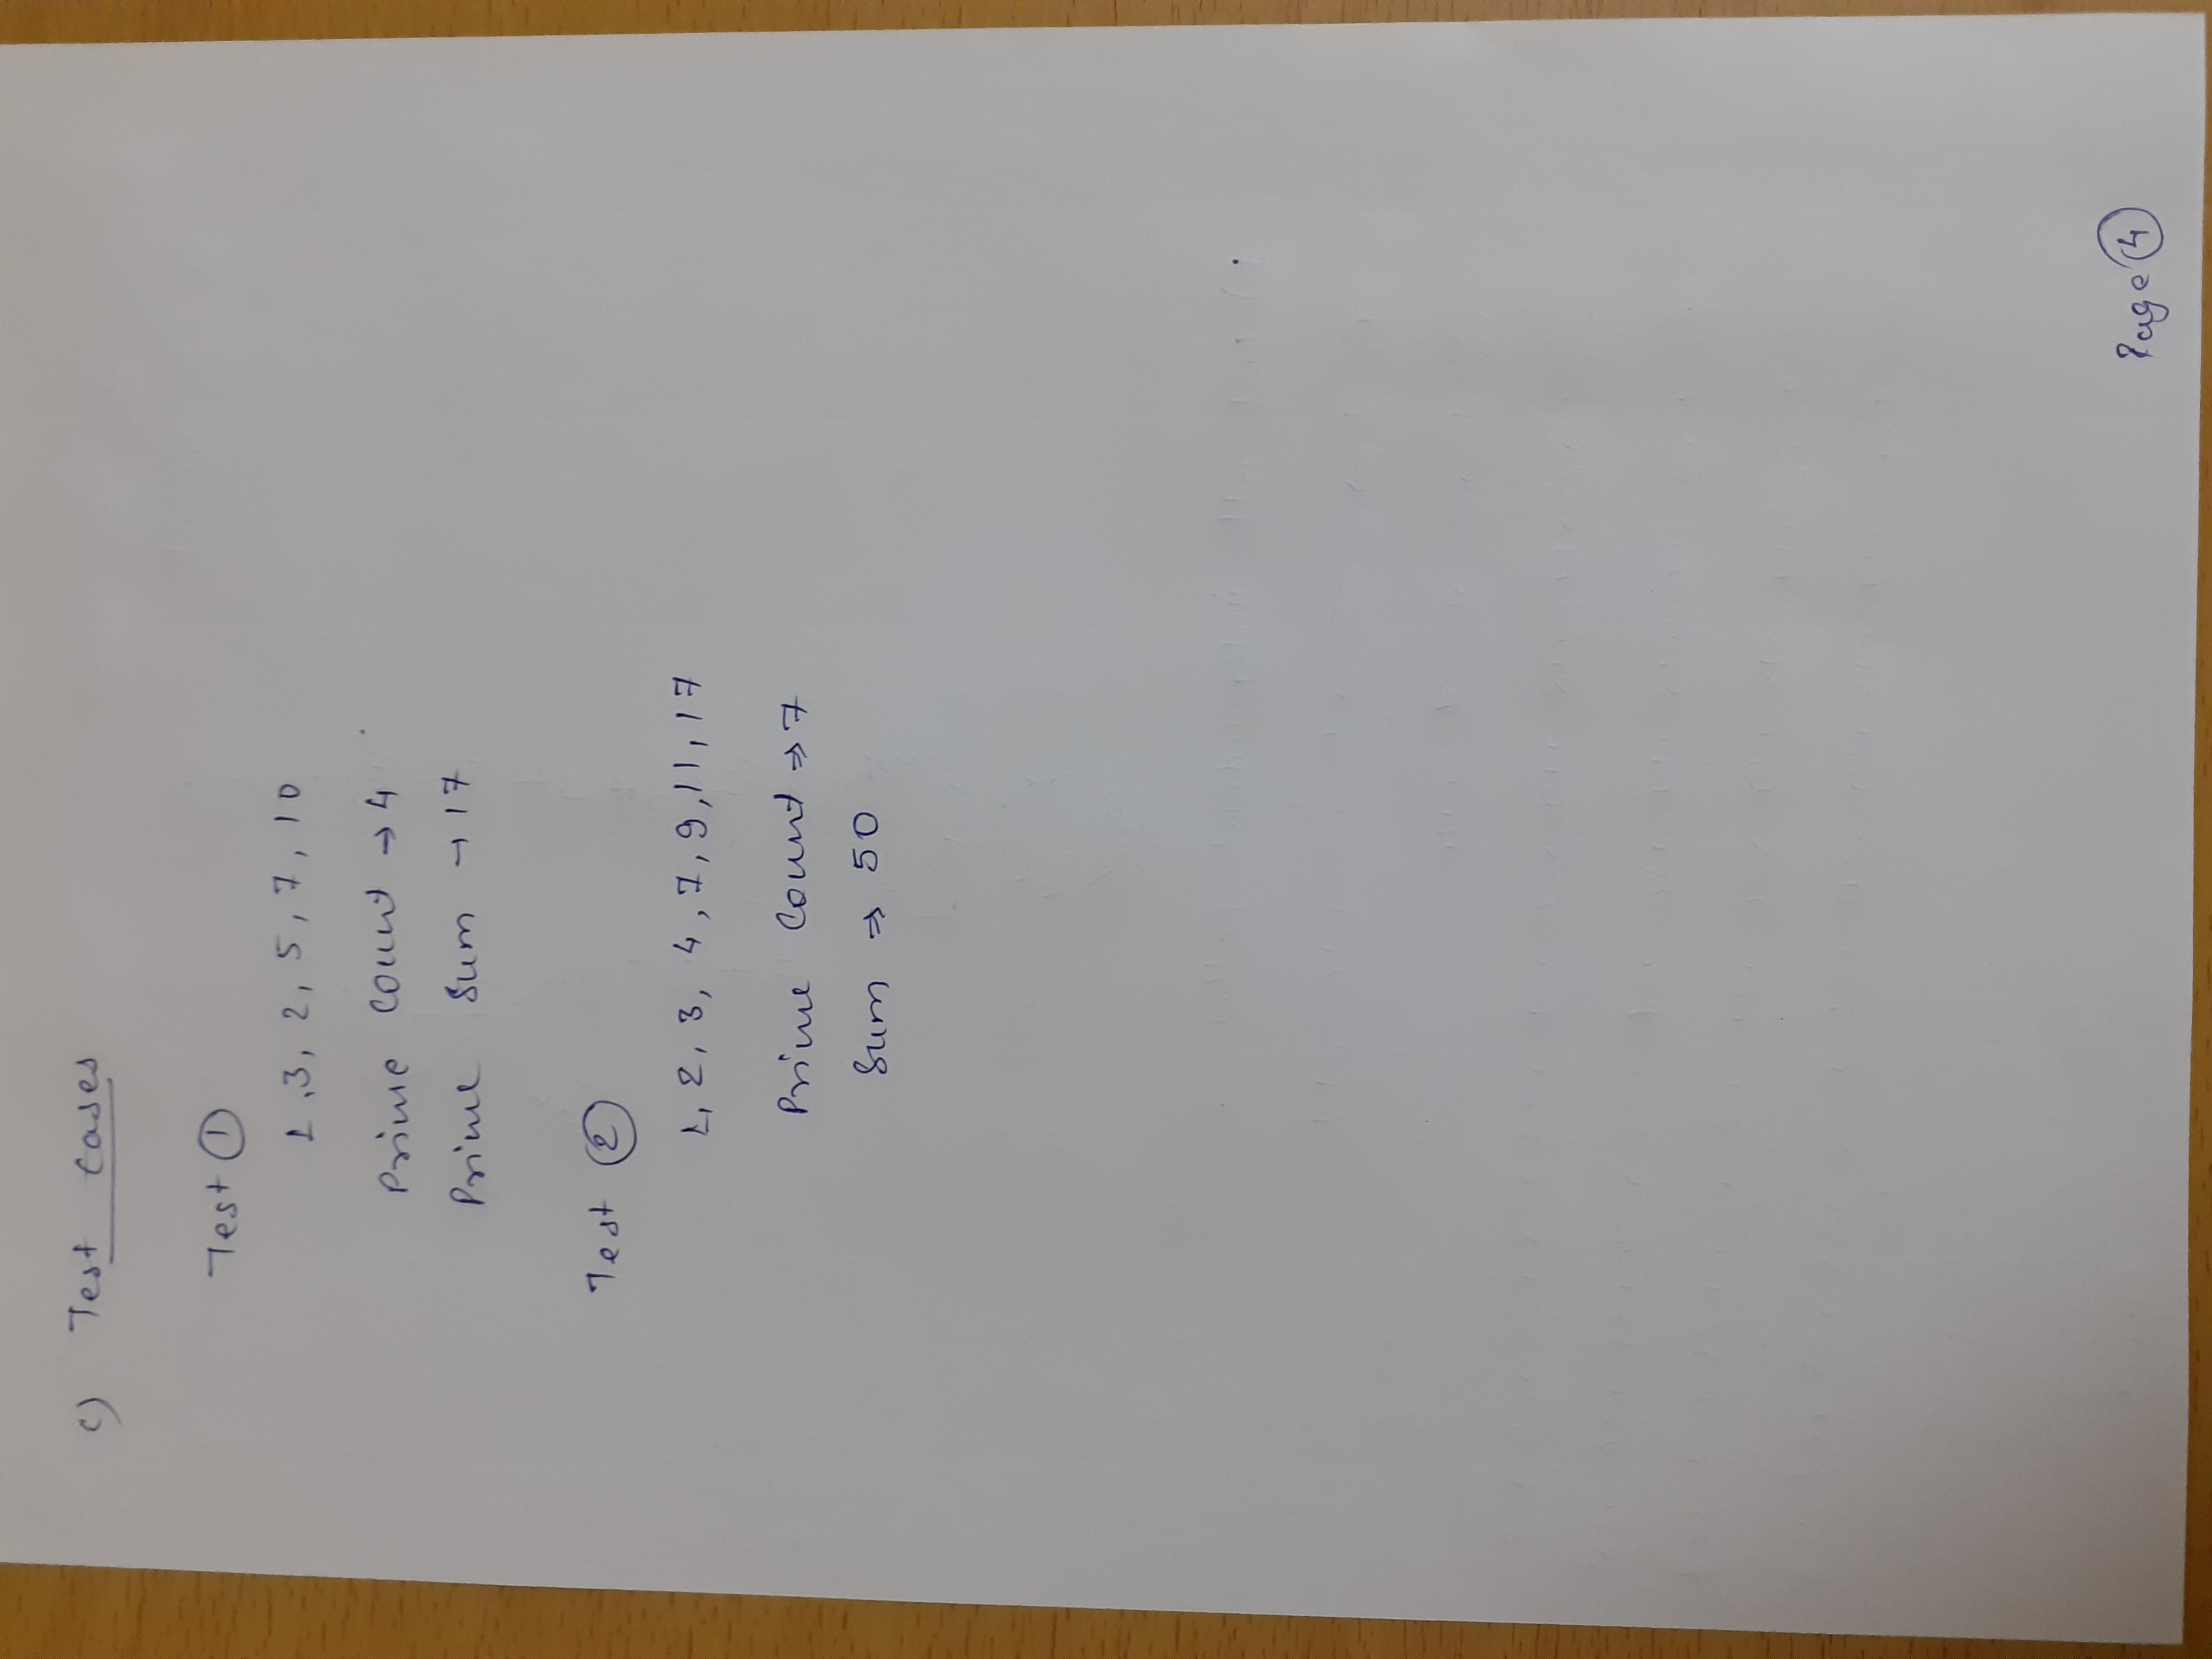 c) Test Cases
Test ①
1, 3, 2, 5, 7, 10
Prime Count → 4
Prime Sum → 17
Test ②
1, 2, 3, 4, 7, 9, 11, 17
Prime Count ⇒ 7
Sum ⇒ 50
Page ④